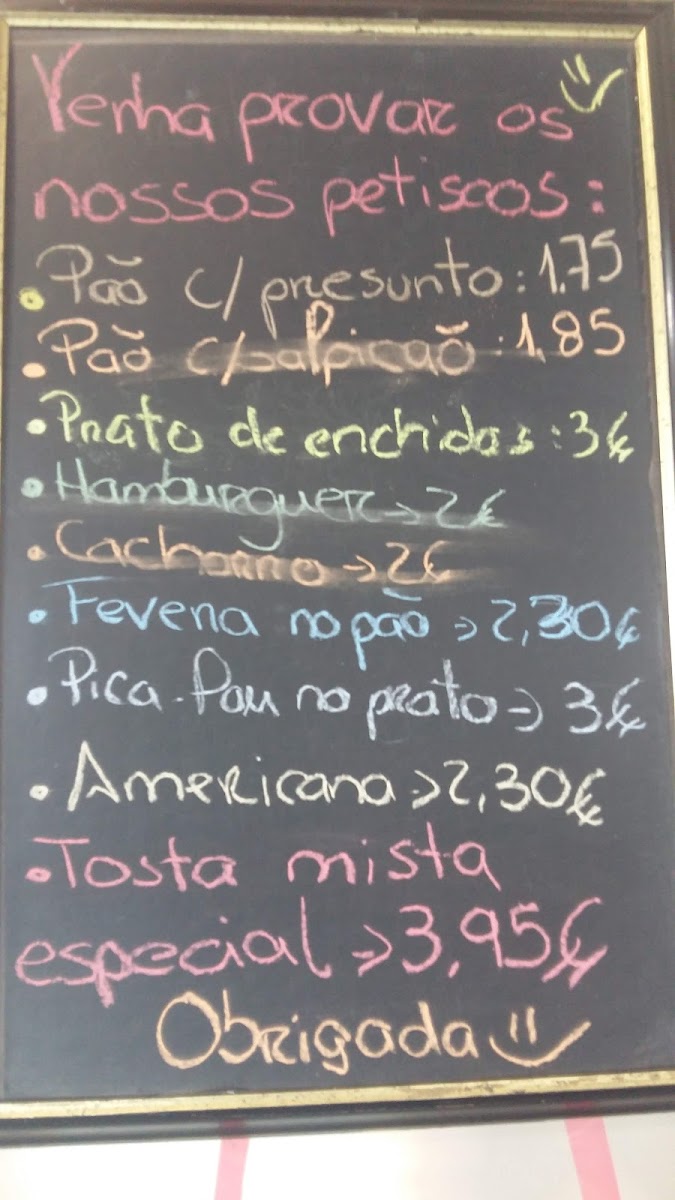 Venha provar os
nossos petiscos:
• Pão c/ presunto: 1.75
• Pão c/salpicão: 1,85
• Prato de enchidos: 3€
• Hamburguer → 2€
• Cachorro → 2€
• Fevera no pão → 2,30€
• Pica-Pau no prato → 3€
• Americana → 2,30€
• Tosta mista
especial → 3,95€
Obrigada